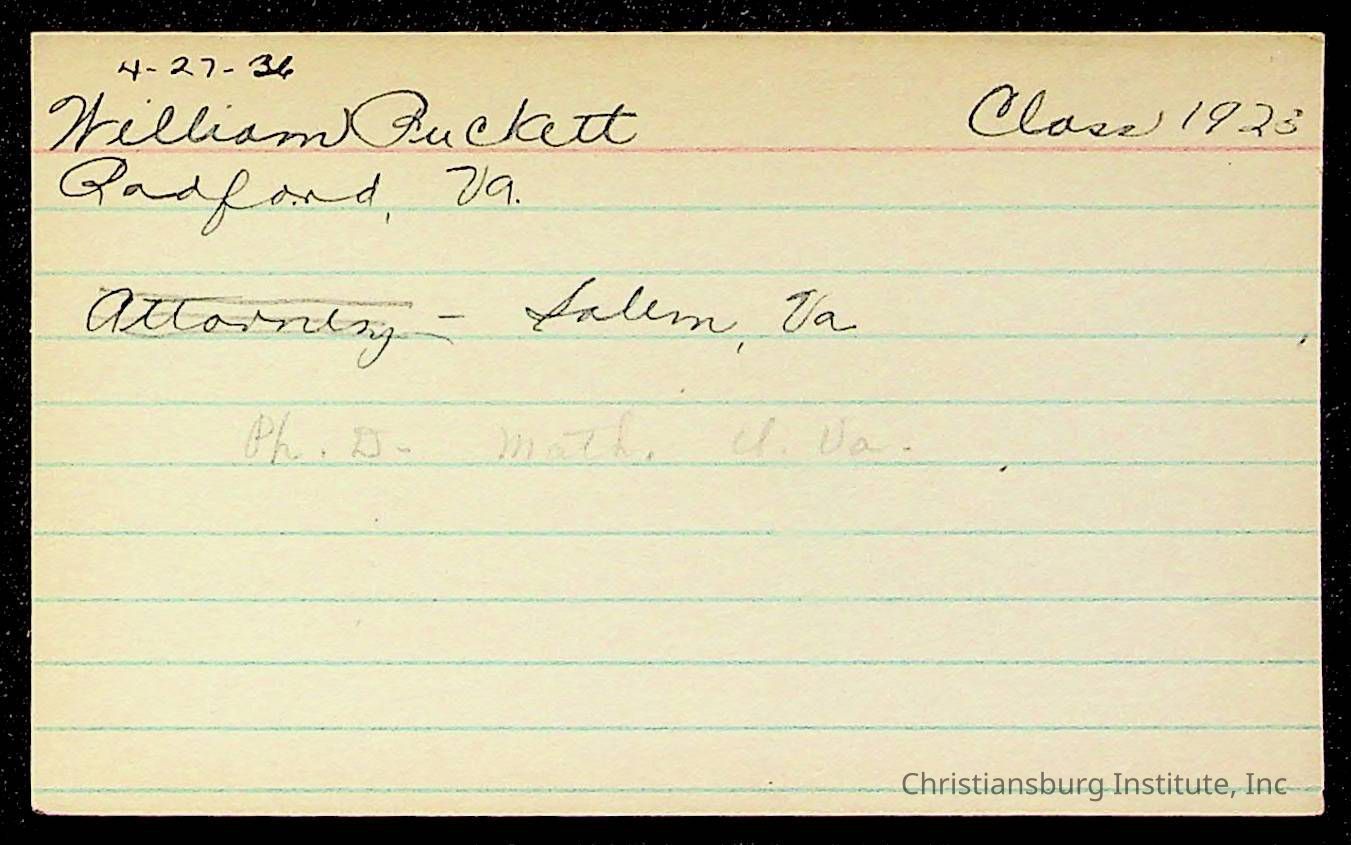 4-27-36
William Puckett Class 1923
Radford, Va.
Attorney - Salem, Va
Ph. D- Math. U. Va.
Christiansburg Institute, Inc